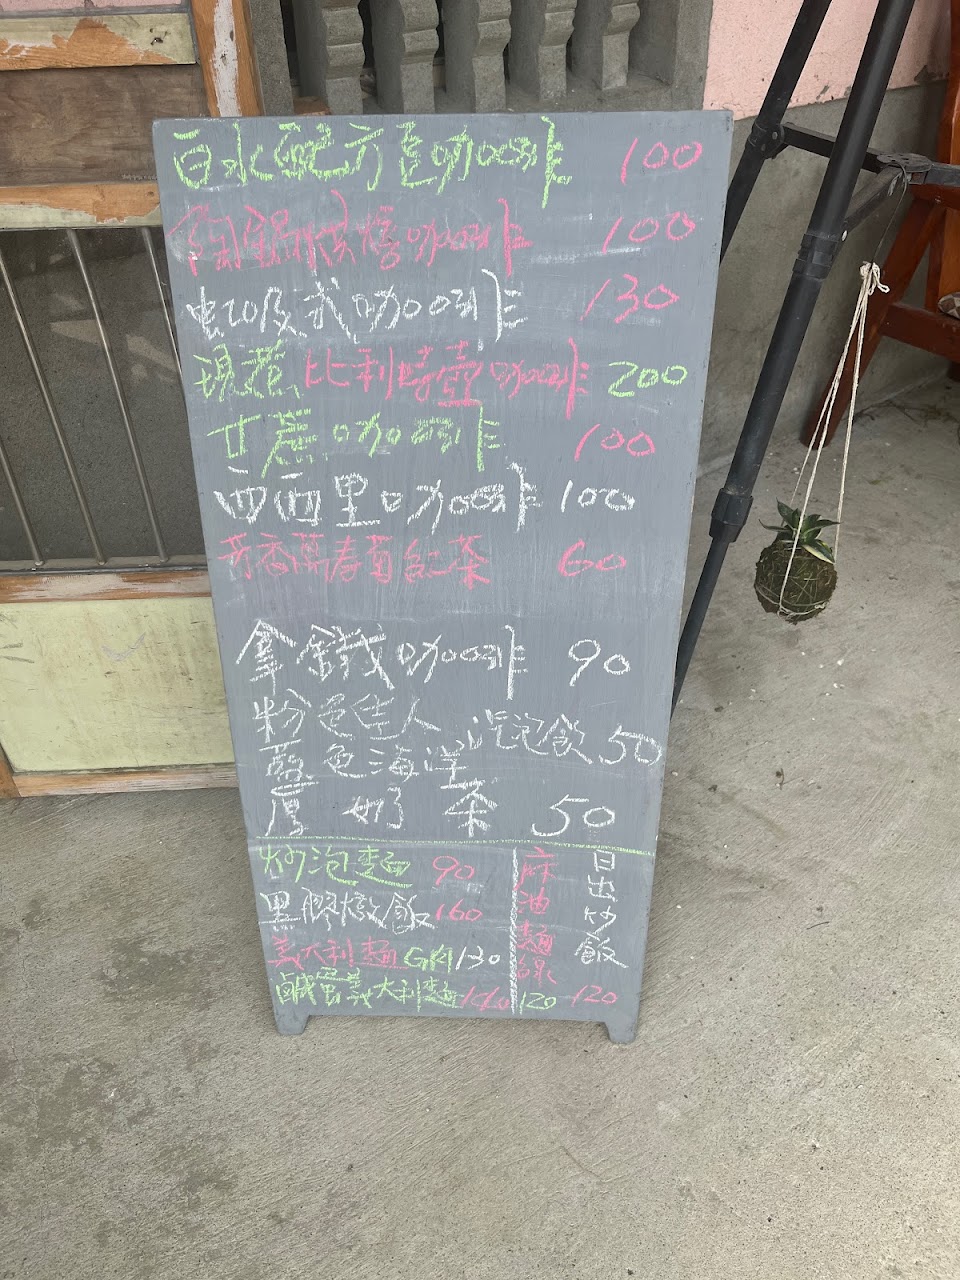 白水配方豆咖啡 100
陶鍋烘焙咖啡 100
虹吸式咖啡 130
現煮比利時壺咖啡 200
甘蔗咖啡 100
西西里咖啡 100
芳香萬壽菊紅茶 60
拿鐵咖啡 90
粉色佳人
藍色海洋 汽泡飲 50
厚奶茶 50
炒泡麵 90
黑膠燉飯 160
義大利麵 G肉 130
鹹蛋義大利麵
麻油麵線 120
日出炒飯 120